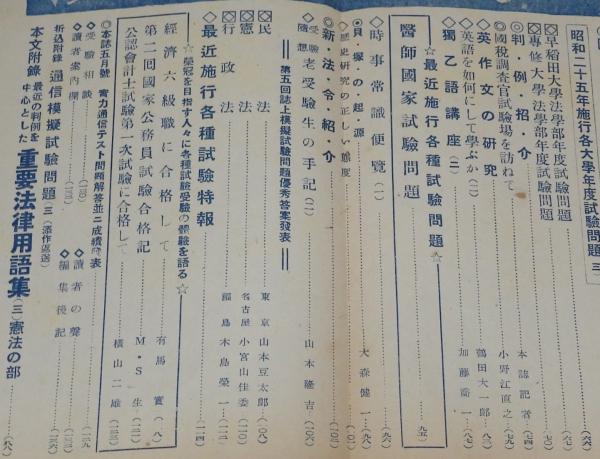 昭和二十五年施行各大學年度試驗問題(三)
早稻田大學法學部年度試驗問題
專修大學法學部年度試驗問題
◎判・例・招・介
國稅調査官試驗場を訪ねて 本誌記者
英作文の研究 小野江直之
◇英語を如何にして學ぶか(二) 鶴田大一郎
◇獨乙語講座(二) 加藤喬一
☆最近施行各種試驗問題☆
醫師國家試驗問題
◇時事常識便覽(一)
◎貝・塚・の・起・源 大森健一
歷史研究の正しい態度
◎新・法・令・紹・介
受驗隨想 老受驗生の手記(二) 山本隆吉
第五回誌上模擬試驗問題優秀答案發表
◇民法 東京 山本豆太郎
◇憲法 名古屋 小宮山佳委
◇行政法 福島 木島榮一
◇最近施行各種試驗特報
☆榮冠を目指す人々に各種試驗受驗の體驗を語る☆
經濟六級職に合格して 有馬實
第二回國家公務員試驗合格記 M・S生
公認會計士試驗第一次試驗に合格して 橫山二雄
◎本誌五月號 實力通信テスト問題解答並ニ成績發表
◇受驗相談 ◇讀者の聲
◇讀者案內欄 ◇編集後記
折込附錄 通信模擬試驗問題(三)(添作返送)
本文附錄 最近の判例を中心とした 重要法律用語集(三)憲法の部